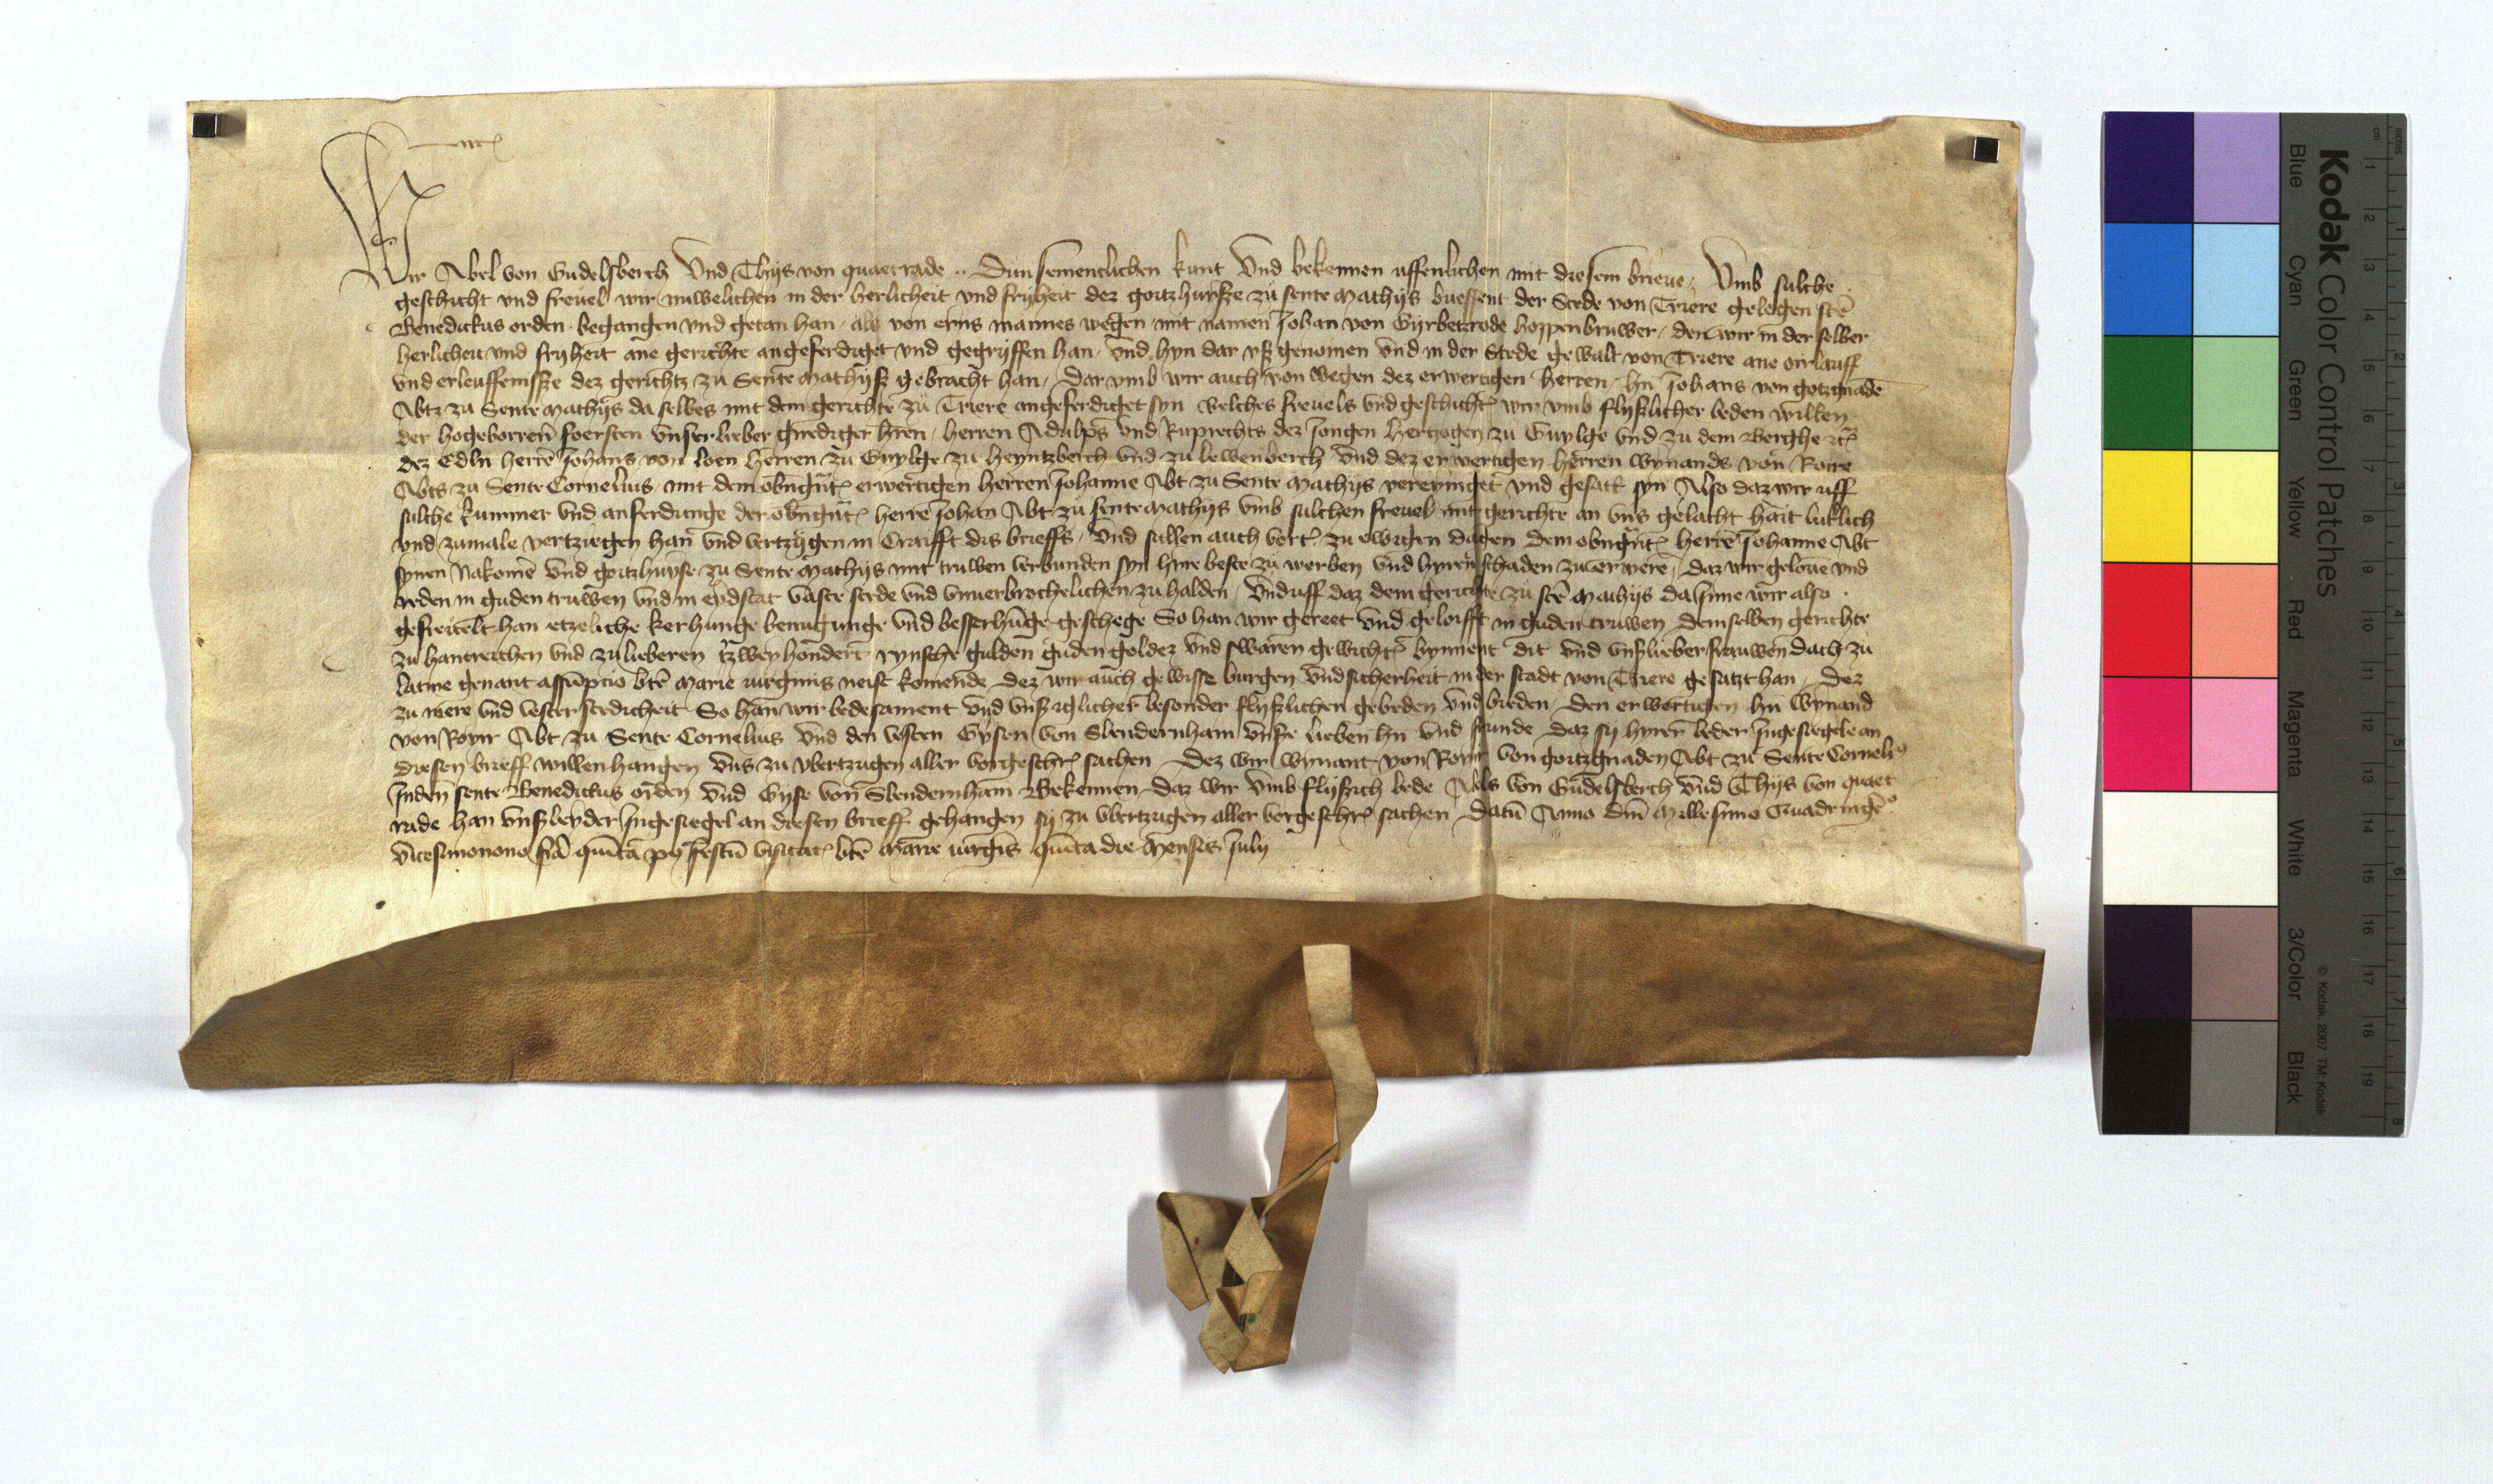 Wir Abel von Gudelsberch Vnd Thijs von quaetrade .. Dun sementlichen kunt Vnd bekennen uffenlichen mit diesem brieue, Vmb sulche
geschicht vnd freuel wir nuwelichen in der herlicheit vnd fryheit dez goitzhuisze zu sente Mathijs buessent der Stede von Triere gelegen sc̄e
Benedictus orden begangen vnd getan han, als von eyns mannes wegen mit namen Johan von Gyrbetzrode hoppenbruwer, den wir in der selber
herlicheit vnd fryheit ane gerichte angeferdiget vnd gegryffen han, vnd hyn dar vsz genomen vnd in der Stede gewalt von Triere ane oirlauff
vnd erleuffenisze dez gerichtz zu Sente Mathijsz gebracht han, Dar vmb wir auch von wegen dez erwertigen herren hn̄ Johans von gotzgnade
Abtz zu Sente Mathijs da selbes mit dem gerichte zu Triere angeferdiget syn welches freuels vnd geschicht wir vmb flyszlicher beden willen
der hogeborren foersten vnser lieber gnediger hren, herren Adulps vnd Ruprechts dez Jongen hertzogen zu Guylge vnd zu dem Berghe etc
dez Edeln herrē Johans von loen herren zu Guylge zu heyntzberch vnd zu lewenberch vnd dez erwertigen herren wynands von Roire
Abts zu Sente Cornelius, mit dem obn̄gn̄t erwertigen herren Johanne Abt zu Sente Mathijs vereyniget vnd gesatt syn Also daz wir uff
sulche kummer vnd anferdunge der obn̄gn̄t herrē Johan Abt zu sente Mathijs vmb sulchen freuel mit gerichte an vns gelacht hait luttlich
vnd zumale vertziegen han vnd vertzijgen in Craifft dis brieffs, vnd sullen auch vort zu ewigen dagen dem obn̄gn̄t herrē Johanne Abt
synen Nakomē vnd goitzhuyse zu Sente Mathijs mit truwen verbunden syn hire beste zu werben vnd hyren schaden zu erwerē, daz wir geloue vnd
reden in guden truwen vnd in eydstat vaste stede vnd vnuerbrochelichen zu halden, vnd uff daz dem gerichte zu sc̄e Mathijs da Inne wir also
gefreuelt han etzeliche kerhunge benugunge vnd besserhūge geschege So han wir gereet vnd geloifft in guden truwen demselben gerichte
zu hantreichen vnd zu lieberen tzwey hondert rynsche gulden guden goldez vnd swaren gewicht bynnent dit vnd vnsz lieber frauwen dach zu
latine genant assūptio btē Marie virginis neist komende dez wir auch gewisse burgen vnd sicherheit in der stadt von Triere gesatzt han, Dez
zu mere vnd vester stedicheit So han wir bedesament vnd vnsz iglicher besonder flyszlichen gebeden vnd bieden den erwertigen hn̄ wynand
von Royr Abt zu Sente Cornelius vnd den vesten Gysen von Slendernham vnse lieben hn̄ vnd frunde daz sy hyrer beder Ingesiegele an
diesen brieff willen hangen vns zu vbertzugen aller vorgeschr sachen Dez wir wynant von Royr von goitzgnaden Abt zu Sente Corneli9
Inden sente Benedictus orden vnd Gyse von Slendernham Bekennen daz wir vmb flyszich bede Abels von Gudelsberch vnd Thijs von quaet
rade han vnsz beyder Ingesiegel an diesen brieff gehangen sy zu vbertzugen aller vorgeschr sachen Datū Anno dn̄i Millesimo Quadringē°
vicesimonono fr̄ia quīta p9 festū visitac btē Marie virgīs quīta die Mensis July
Kodak Color Control Patches
Blue Cyan Green Yellow Red Magenta White 3/Color Black
© Kodak, 2007 TM: Kodak
cm 1 2 3 4 5 6 7 8 9 10 11 12 13 14 15 16 17 18 19
inches 1 2 3 4 5 6 7 8